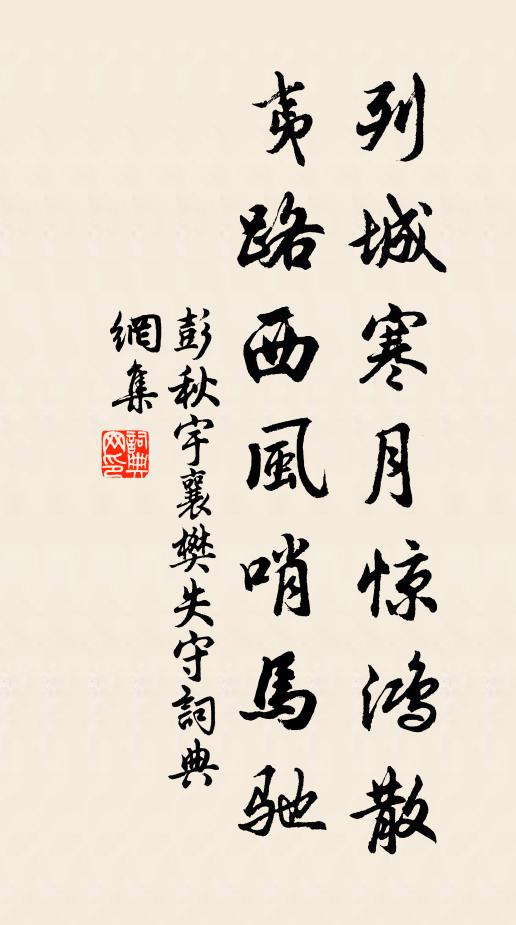 列城寒月惊鸿散
夷路西風哨馬驰
彭秋宇襄樊失守詞典
網集
詞典
网印